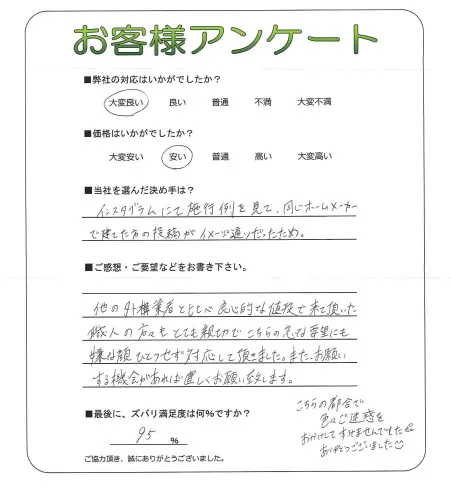 お客様アンケート
■弊社の対応はいかがでしたか？
大変良い 良い 普通 不満 大変不満
■価格はいかがでしたか？
大変安い 安い 普通 高い 大変高い
■当社を選んだ決め手は？
インスタグラムにて施行例を見て、同じホームメーカー
で建てた方の投稿がイメージ通りだったため。
■ご感想・ご要望などをお書き下さい。
他の外構業者とくらべ良心的な値段で来て頂いた
職人の方々もとても親切でこちらの急な要望にも
嫌な顔ひとつせず対応して頂きました。また、お願い
する機会があれば宜しくお願い致します。
こちらの都合で
色々ご迷惑を
おかけしてすみませんでした
ありがとうございました
■最後に、ズバリ満足度は何％ですか？
95 ％
ご協力頂き、誠にありがとうございました。